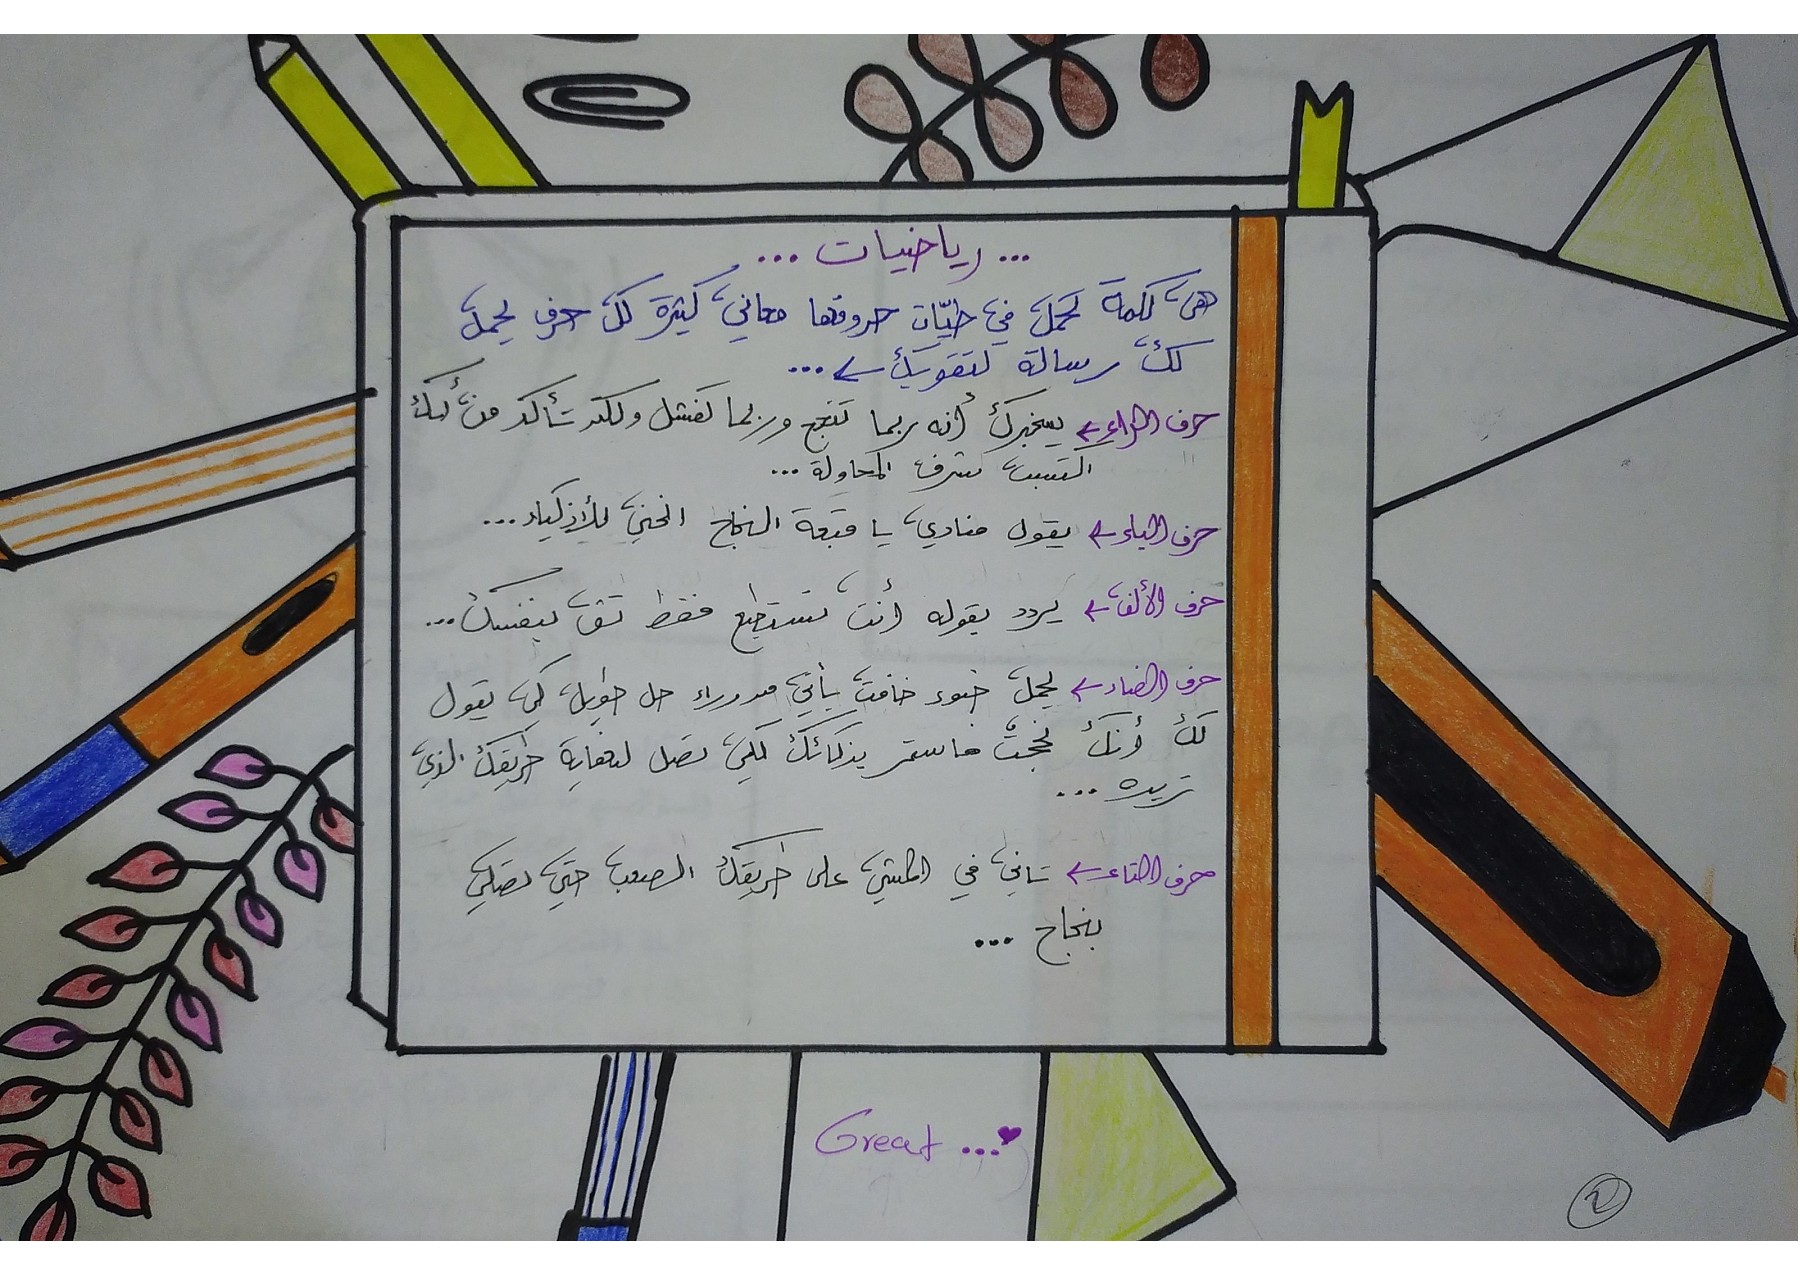 ... رياضيات ...
هي كلمة تحمل في طيّات حروفها معاني كثيرة كل حرف يحمل
لك رسالة لتقويك ← ...
حرف الراء ← يخبرك أنه ربما تنجح وربما تفشل ولكن تأكد من أنك
اكتسبت شرف المحاولة ...
حرف الياء ← يقول منادي يا قبعة النجاح انحني للأذكياء...
حرف الألف ← يردد بقوله أنت تستطيع فقط ثق بنفسك...
حرف الضاد ← يحمل ضوء خافت يأتي من وراء حل طويل كي يقول
لك أنك نجحت فاستمر بذكائك لكي تصل لنهاية طريقك الذي
تريده ...
حرف التاء ← تأني في المشي على طريقك الصعب حتى تصلي
بنجاح ...
Great ...
2